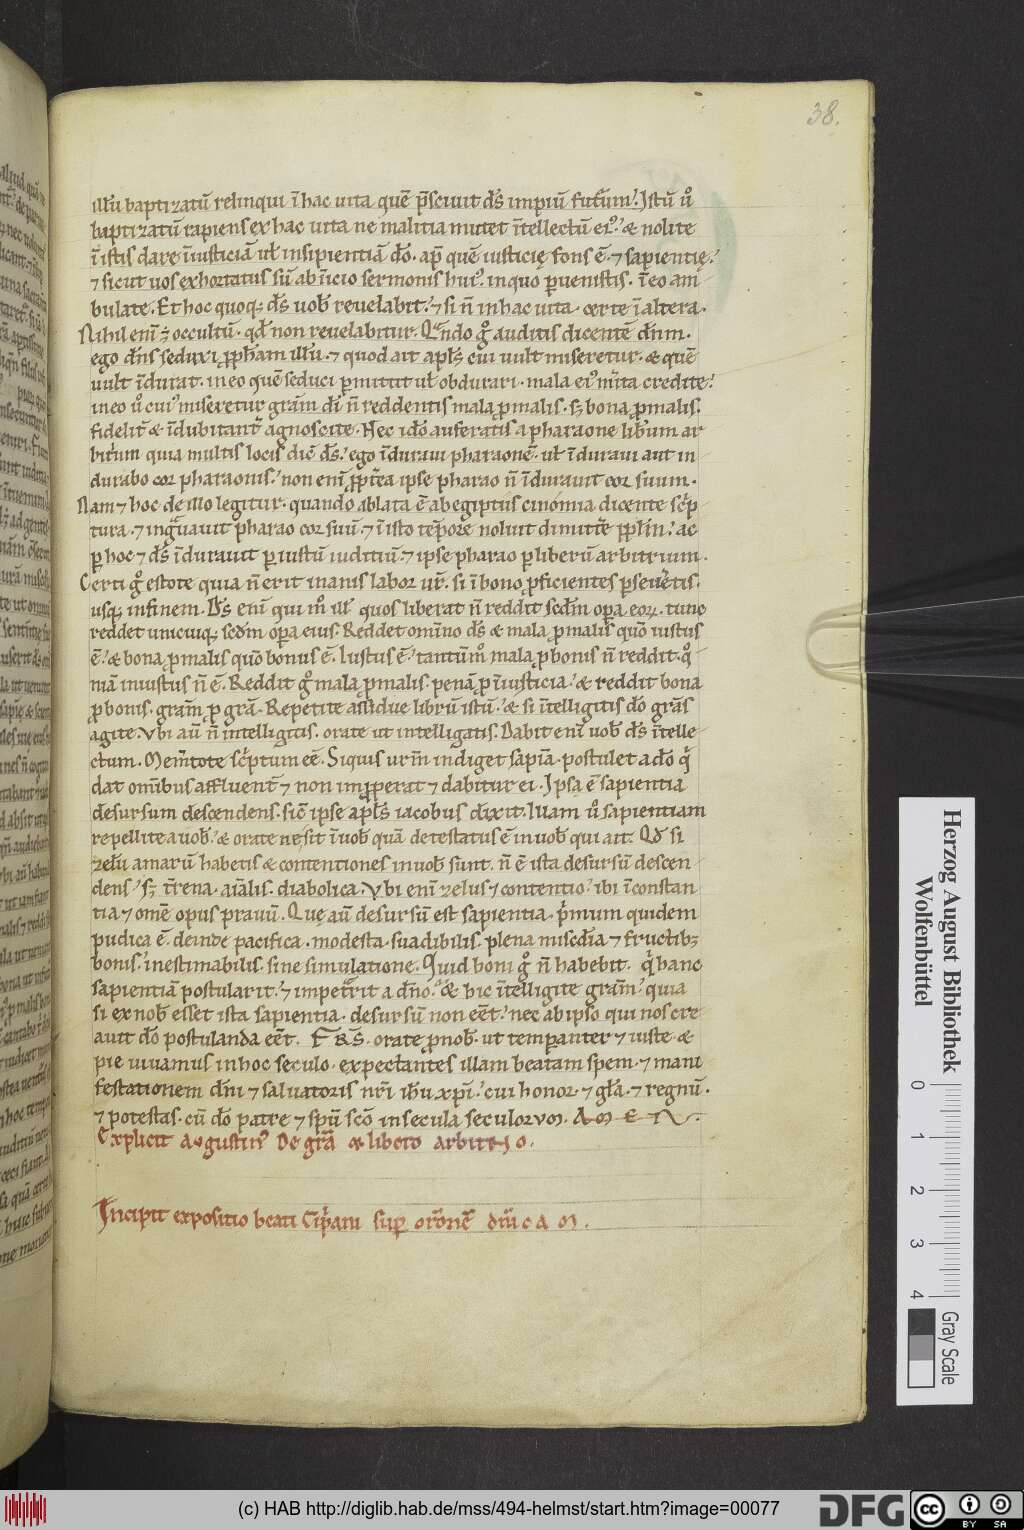 38.
illū baptizatū relinqui ī hac uita quē p̄sciuit d̄s impiū futurum. Istū u̾o
baptizatū rapiens ex hac uita ne malitia mutet ītellectū ei᷒. & nolite
ī istis dare īiusticiā ut̄ insipientiā dō. ap̄ quē iusticię fons ē. ⁊ sapientię.
⁊ sicut uos exhortatus sū ab īicio sermonis hui᷒. in quo ꝑuenistis. ī eo am
bulate. Et hoc quoq; d̄s uob̄ reuelabit. ⁊ si n̄ in hac uita. certe ī altera.
Nihil enī ē occultū. qd̄ non reuelabitur. Qn̄do gͦ auditis dicentē dn̄m.
ego dn̄s seduxi ꝓph̄am illū. ⁊ quod ait apl̄s cui uult miseretur. & quē
uult īdurat. in eo quē seduci ꝑmittit ut̄ obdurari. mala ei᷒ m̄ita credite.
in eo u̾o cui᷒ miseretur grām dī n̄ reddentis mala ꝓ malis. sꝫ bona ꝓ malis.
fidelit̄ & īdubitant̄ agnoscite. Nec idō auferatis a pharaone lib̄um ar
bitrium quia multis locis dic̄ d̄s. ego īduraui pharaonē. ut̄ īduraui aut in
durabo cor pharaonis. non enī ꝓpt̄ea ipse pharao n̄ īdurauit cor suum.
Nam ⁊ hoc de illo legitur. quando ablata ē ab egiptiis cinomia dicente sc̄p
tura. ⁊ ingͣuauit pharao cor suū. ⁊ ī isto tēpore noluit dimitt̄e ppl̄m. ac
ꝑ hoc ⁊ d̄s īdurauit ꝑ iustū iuditiū. ⁊ ipse pharao ꝑ liberū arbitrium.
Certi gͦ estote quia n̄ erit inanis labor ur̄. si ī bono ꝓficientes ꝑseu̾etis
usq; in finem. D̄s enī qui m̊ ill̄ quos liberat n̄ reddit scd̄m oꝑa eoꝝ. tunc
reddet unicuiq; scd̄m oꝑa eius. Reddet omīno d̄s & mala ꝓ malis quō iustus
ē. & bona ꝓ malis quō bonus ē. Iustus ē. tantūm̊ mala ꝓ bonis n̄ reddit. qͦ
niā iniustus n̄ ē. Reddit gͦ mala ꝓ malis. penā ꝓ īiusticia. & reddit bona
ꝓ bonis. grām ꝓ grā. Repetite assidue librū istū. & si ītelligitis dō grās
agite. Vbi aū n̄ intelligitis. orate ut intelligatis. Dabit enī uob̄ d̄s ītelle
ctum. Mem̄tote sc̄ptum eē. Siquis ur̄m indiget sapīa. postulet a dō qͥ
dat omībus affluent̄ ⁊ non imꝓperat ⁊ dabitur ei. Ipsa ē sapientia
desursum descendens. sic̄ ipse apl̄s iacobus dixit. Illam u̾o sapientiam
repellite a uob̄. & orate ne sit ī uob̄ quā detestatus ē in uob̄ qui ait. Qd̄ si
zelū amarū habetis & contentiones in uob̄ sunt. n̄ ē ista desursū descen
dens. sꝫ t̄rena. aīalis. diabolica. Vbi enī zelus ⁊ contentio. ibi īconstan
tia ⁊ omē opus prauū. Quę aū desursū est sapientia. pͥmum quidem
pudica ē. deinde pacifica. modesta. suadibilis. plena misc̄dia ⁊ fructibꝫ
bonis. inestimabilis. sine simulatione. Quid boni gͦ n̄ habebit. qͥ hanc
sapientiā postularit. ⁊ impetrarit a dn̄o. & hic ītelligite grām. quia
si ex nob̄ esset ista sapientia. desursū non eēt. nec ab ipso qui nos cre
auit dō postulanda eēt. FRS̄. orate ꝓ nob̄. ut temperanter ⁊ iuste. &
pie uiuamus in hoc seculo. expectantes illam beatam spem. ⁊ mani
festationem dn̄i ⁊ saluatoris nr̄i ih̄u xp̄i. cui honor. ⁊ gl̄a. ⁊ regnū.
⁊ potestas. cū dō patre ⁊ sp̄u sc̄o in secula seculorum. AMEN.
Explicit Augustin᷒ De grā & libero arbitrio.
Incipit expositio beati Cipͥani suꝑ or̄onē dn̄icam.
Herzog August Bibliothek
Wolfenbüttel
0 1 2 3 4
Gray Scale
(c) HAB http://diglib.hab.de/mss/494-helmst/start.htm?image=00077
DFG
cc BY SA